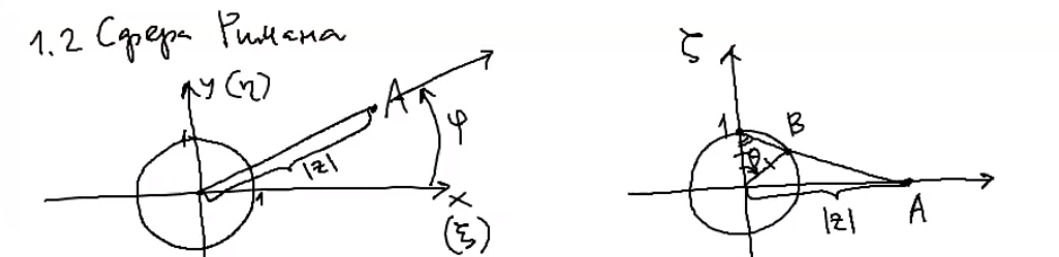 1.2 Сфера Римана
y (η)
A
φ
|z|
1
1
x
(ξ)
ζ
1
B
θ
|z|
A